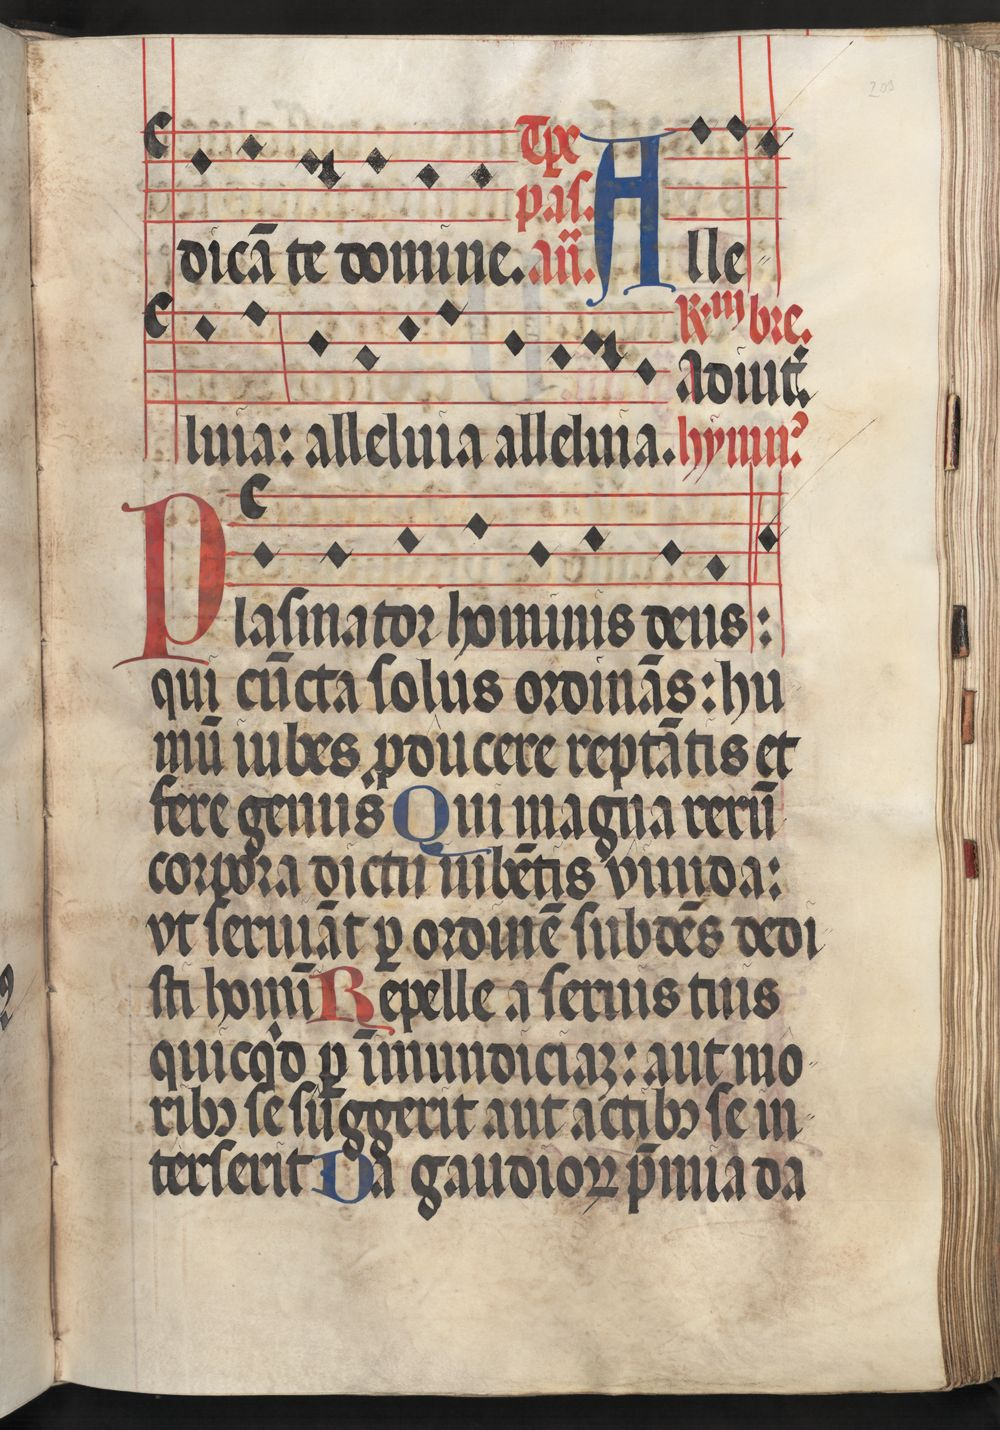 203
dicā te domine. Tpe pas. añ. Alle
R. m bre. Adiut.
luia: alleluia alleluia. hymn?
Plasmator hominis deus:
qui cūcta solus ordinās: hu
mū iubes ꝓducere reptātis et
fere genus Qui magna rerū
corpora dictu iubētis viuida:
vt seruiāt ꝑ ordinē subdēs dedi
sti homī Repelle a seruis tuis
quicqd ꝑ īmundiciaꝫ: aut mo
ribꝫ se suggerit aut actibꝫ se in
terserit Da gaudioꝝ p̄mia da